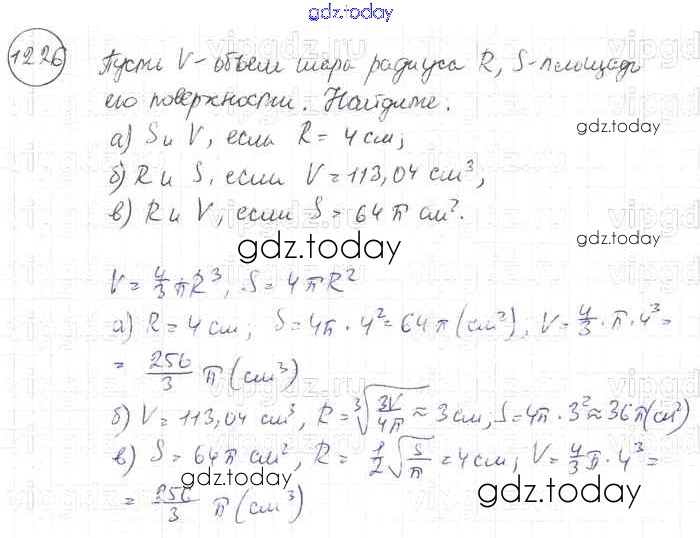 gdz.today
1226 Пусть V - объем шара радиуса R, S - площадь
его поверхности. Найдите:
а) S и V, если R = 4 см;
gdz.today
б) R и S, если V = 113,04 см³,
в) R и V, если S = 64π см².
gdz.today
V = 4/3 πR³, S = 4πR²
а) R = 4 см; S = 4π · 4² = 64π (см²), V = 4/3 · π · 4³ =
= 256/3 π (см³)
gdz.today
б) V = 113,04 см³, R = ∛(3V/4π) ≈ 3 см, S = 4π · 3² ≈ 36π (см²)
в) S = 64π см², R = 1/2 √(S/π) = 4 см; V = 4/3 π · 4³ =
= 256/3 π (см³)
gdz.today